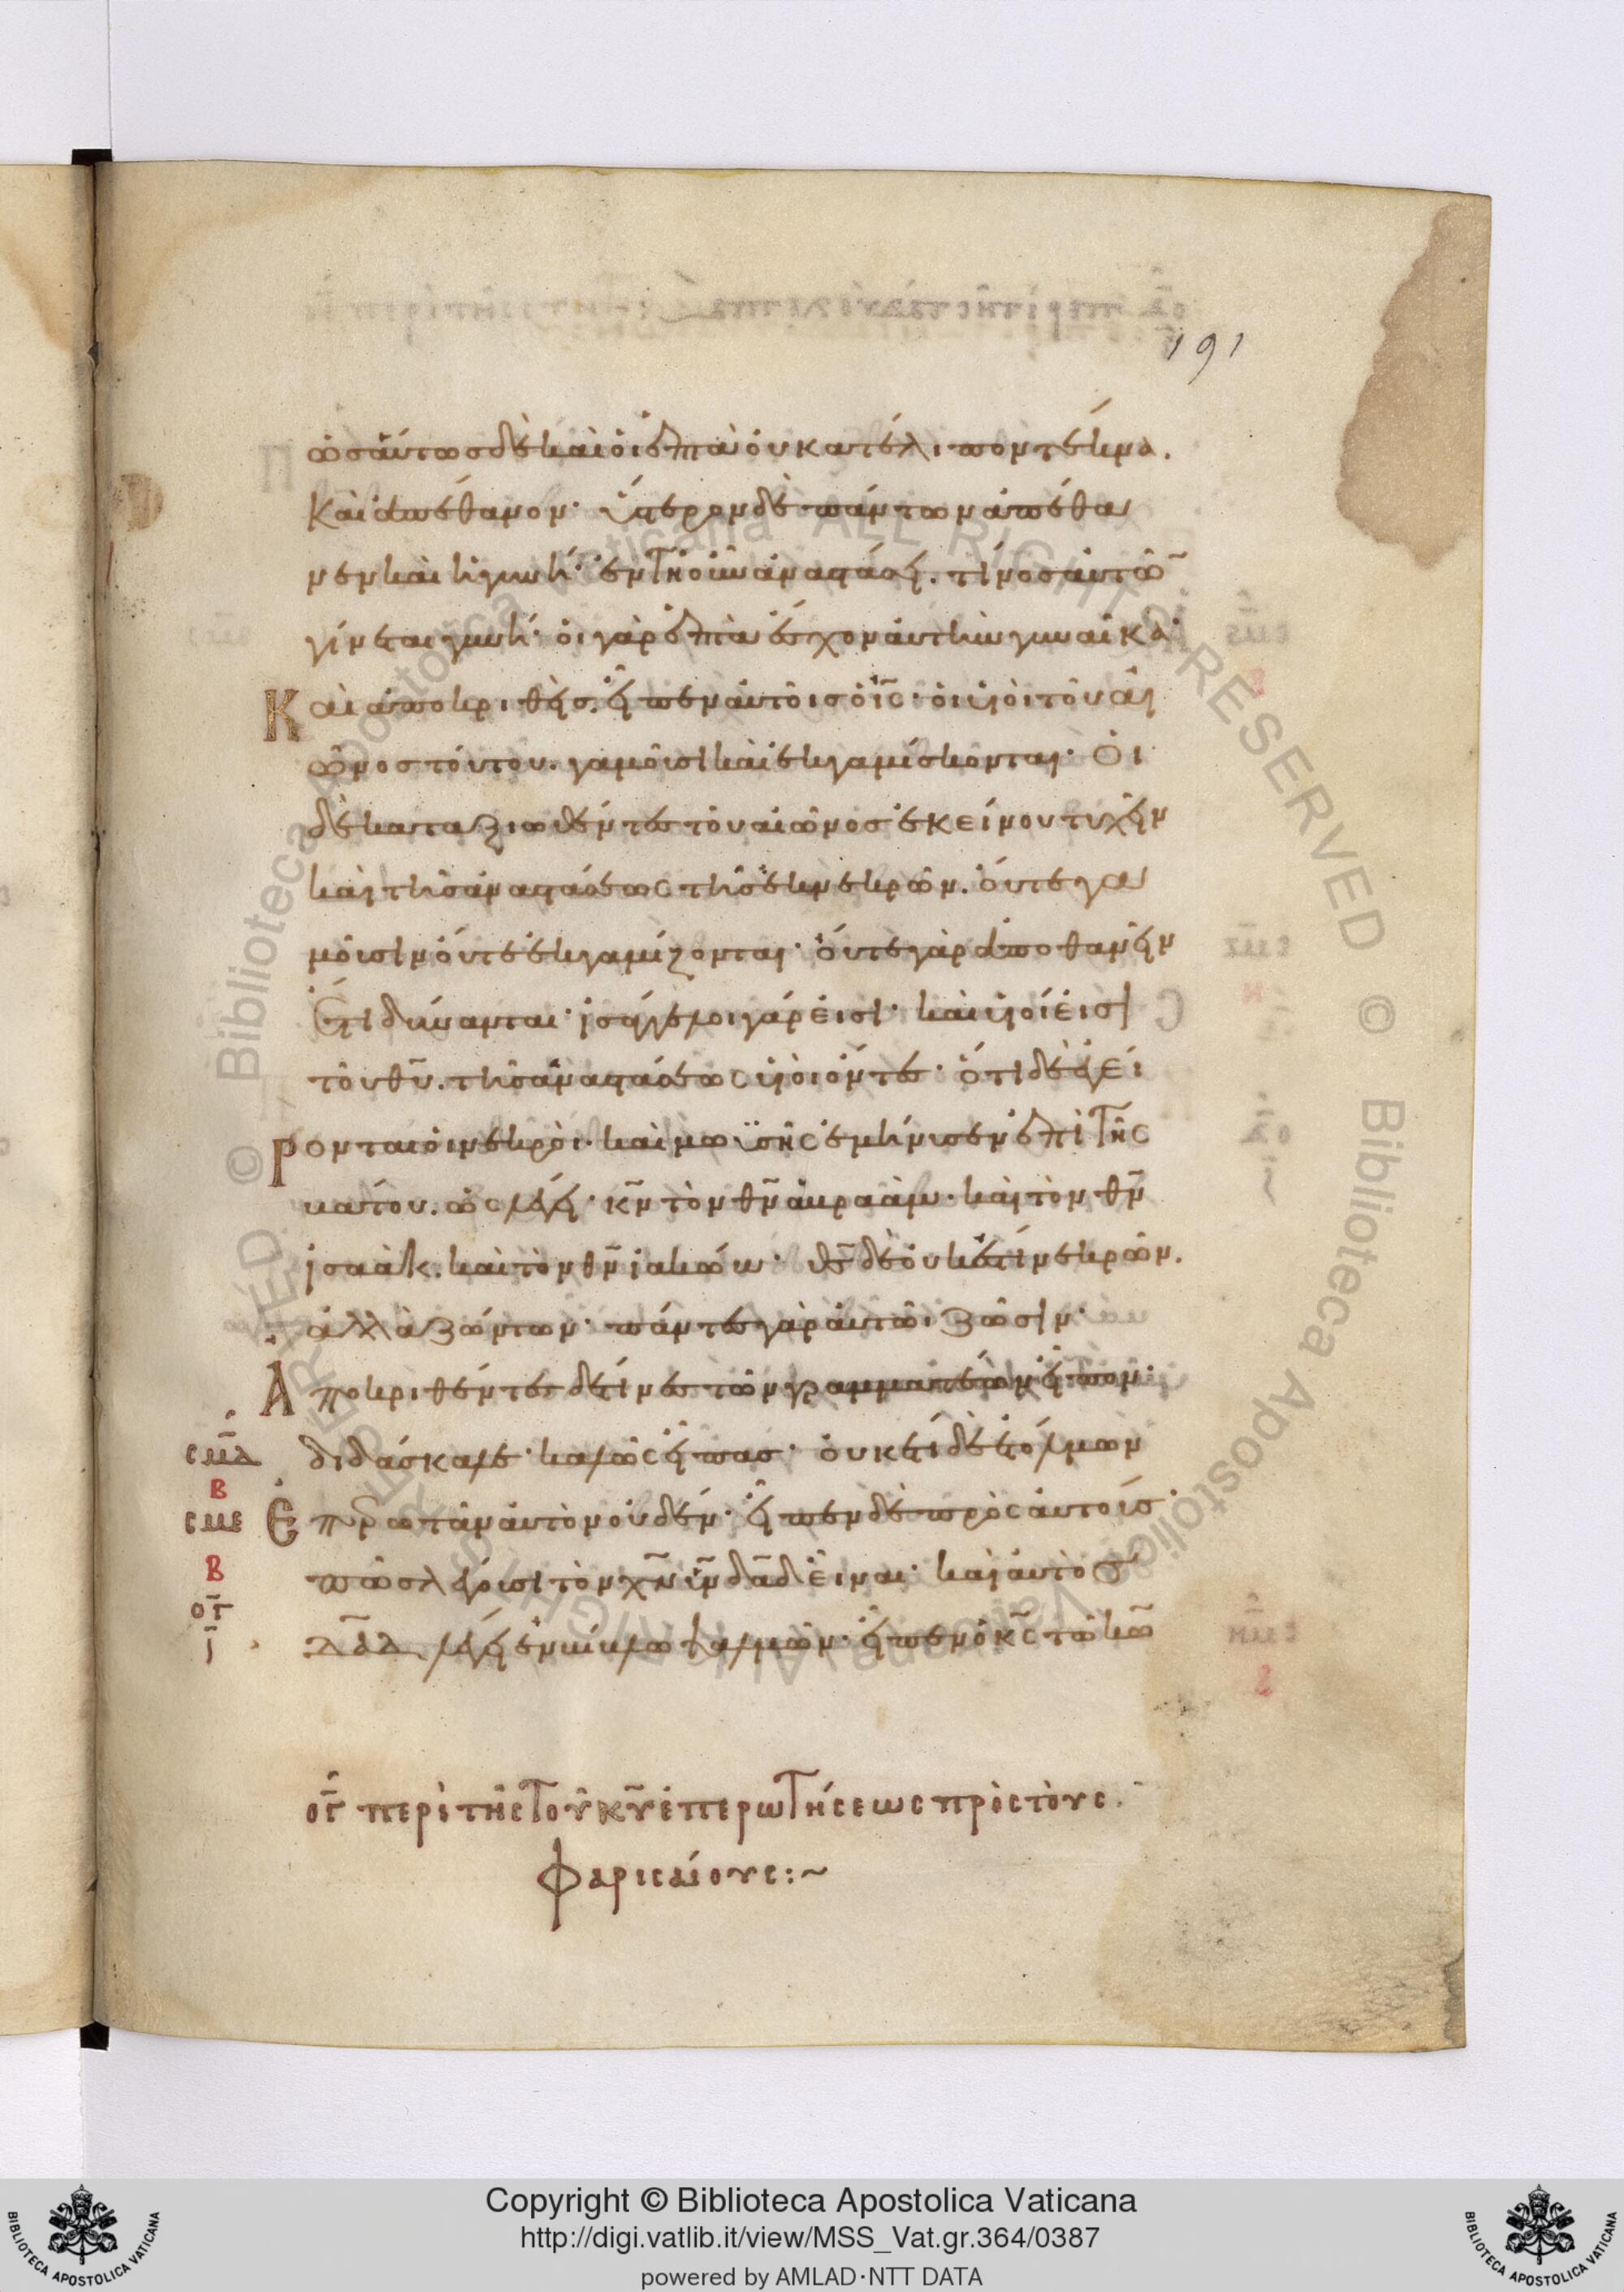 191
ὡσαύτωσ δὲ καὶ οἱ ἑπτὰ οὐ κατέλιπον τέκνα.
Καὶ ἀπέθανον· ὕστερον δὲ πάντων ἀπέθα
νεν καὶ ἡ γυνή· ἐν τῇ οὖν ἀναστάσει. τίνοσ αὐτῶ̅
γίνεται γυνή· οἱ γὰρ ἑπτὰ ἔσχον αὐτὴν γυναῖκα·
Καὶ ἀποκριθεὶσ. εἶπεν αὐτοῖσ ὁ ι̅ς· οἱ υἱοὶ τοῦ αἰ
ῶνοσ τούτου. γαμοῦσι καὶ ἐκγαμίσκονται· Οἱ
δὲ καταξιωθέντεσ τοῦ αἰῶνοσ ἐκείνου τυχεῖν
καὶ τῆσ ἀναστάσεως τῆσ ἐκ νεκρῶν. οὔτε γα
μοῦσιν οὔτε ἐκγαμίζονται· οὔτε γὰρ ἀποθανεῖν
ἔτι δύνανται· ἰσάγγελοι γάρ εἰσι· καὶ υἱοί εἰσι
τοῦ θ̅υ. τῆσ ἀναστάσεως υἱοὶ ὄντεσ· ὅτι δὲ ἐγεί
ρονται οἱ νεκροὶ. καὶ μωϋσῆς ἐμήνυσεν ἐπὶ τῆς
βάτου. ὡς λέγει· κ̅ν τὸν θ̅ν ἀβραὰμ· καὶ τὸν θ̅ν
ἰσαὰκ. καὶ τὸν θ̅ν ἰακώβ· θ̅ς δὲ οὐκ ἔστι νεκρῶν.
ἀλλὰ ζώντων· πάντεσ γὰρ αὐτῶ ζῶσιν·
Ἀποκριθέντεσ δέ τινεσ τῶν γραμματέων εἶπον·
σμδ διδάσκαλε· καλῶς εἶπασ· οὐκέτι δὲ ἐτόλμων
β
σμε Ἐπερωτᾶν αὐτὸν οὐδέν· εἶπεν δὲ πρὸς αὐτούσ·
β πῶσ λέγουσι τὸν χ̅ν υ̅ν δα̅δ εἶναι· καὶ αὐτὸσ
ογ
ι δα̅δ λέγει ἐν βίβλω ψαλμῶν· εἶπεν ὁ κ̅ς τῶ κ̅ω
ογ περὶ τῆς τοῦ κ̅υ ἐπερωτήσεως πρὸς τοὺς.
φαρισαίους:~
Copyright © Biblioteca Apostolica Vaticana
http://digi.vatlib.it/view/MSS_Vat.gr.364/0387
powered by AMLAD·NTT DATA